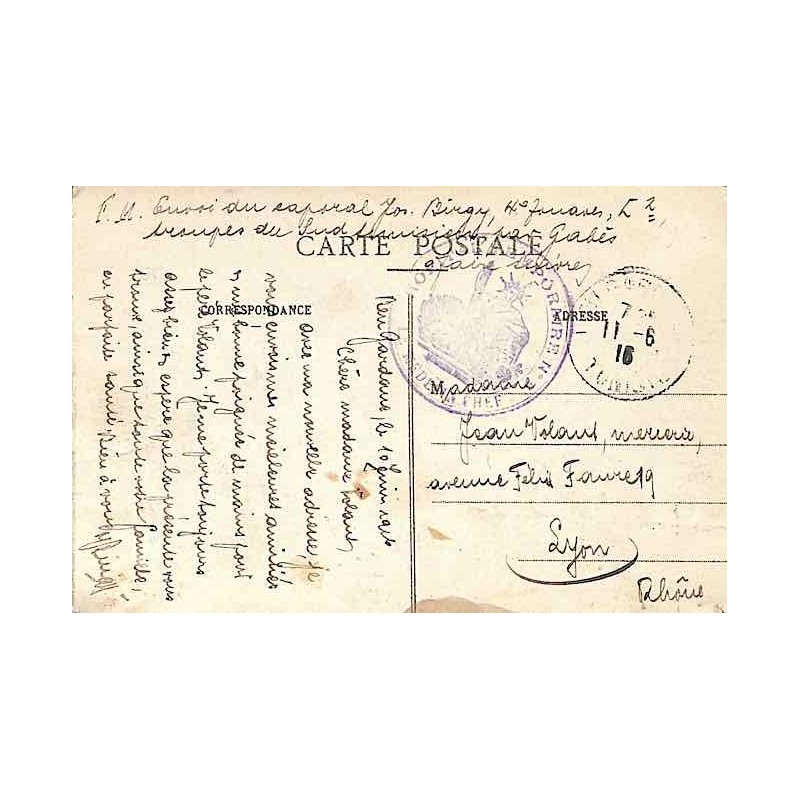 F. M. Envoi du caporal Jos. Birgy, 4e Zouaves,
troupes du Sud tunisien par Gabès
CARTE POSTALE
CORRESPONDANCE
ADRESSE
Ben Gardane, le 10 juin 1916
Chère madame Volant,
avec ma nouvelle adresse, je
vous envoie mes meilleures amitiés
et une bonne poignée de mains pour
le père Volant. Je me porte toujours
assez bien, espère que la présente vous
trouve, ainsi que toute votre famille,
en parfaite santé. Bien à vous
Birgy
MÉDECIN CHEF
11 - 6
16
Madame
Jean Volant, mercerie,
avenue Félix Faure 59
Lyon
Rhône